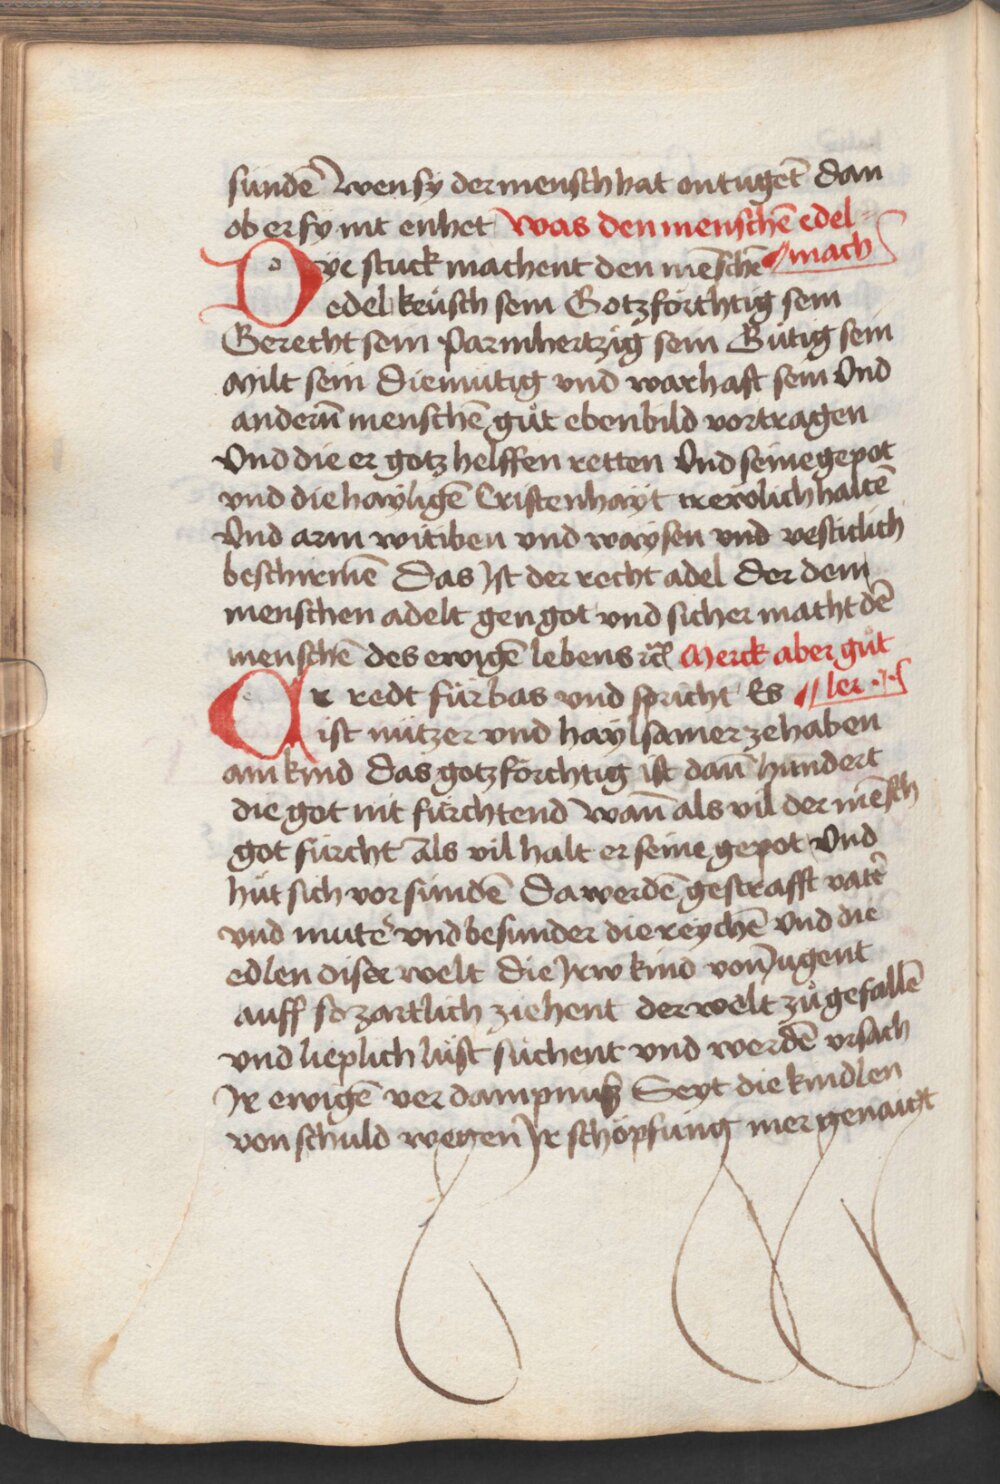 sünde͂ wen sy der mensch hat on tuge͂t dan
ob er sy nit enhet was den mensche͂ edel
Dye stuck machent den me͂sche͂ mach
edel keüsch sein Gotzförchtig sein
Gerecht sein parmhertzig sein Gütig sein
Milt sein Diemütig vnd warhaft sein Vnd
andern͂ mensche͂ gůt ebenbild vortragen
Vnd die er gotz helffen retten Vnd seine gepot
vnd die haylige͂ Cristenhayt trewlich halte͂
Vnd arm witiben vnd waysen vnd vesticlich
beschirme͂ Das Ist der recht adel Der dem
menschen adelt gen got vnd sicher macht de͂
mensche͂ des ewige͂ lebens Merck aber gůt
Er redt fürbas vnd spricht Es ler
ist nützer vnd haylsamer ze haben
ain kind das gotzförchtig ist dan͂ hundert
die got nit fürchtend wan͂ als vil der me͂sch
got fürcht Als vil halt er seine gepot Vnd
hüt sich vor sünde͂ Da werde͂ gestrafft vate͂
vnd mute͂ vnd besunder die reyche͂ Vnd die
edlen diser welt die Irw kind von Iugent
auff so zartlich ziehent der welt zů gefalle͂
vnd lieplich lüst süchent vnd werde͂ vrsach
Ir ewige͂ verdampnuß Seyt die kindlen
von schuld wegen Ir schöpfung mer genaigt